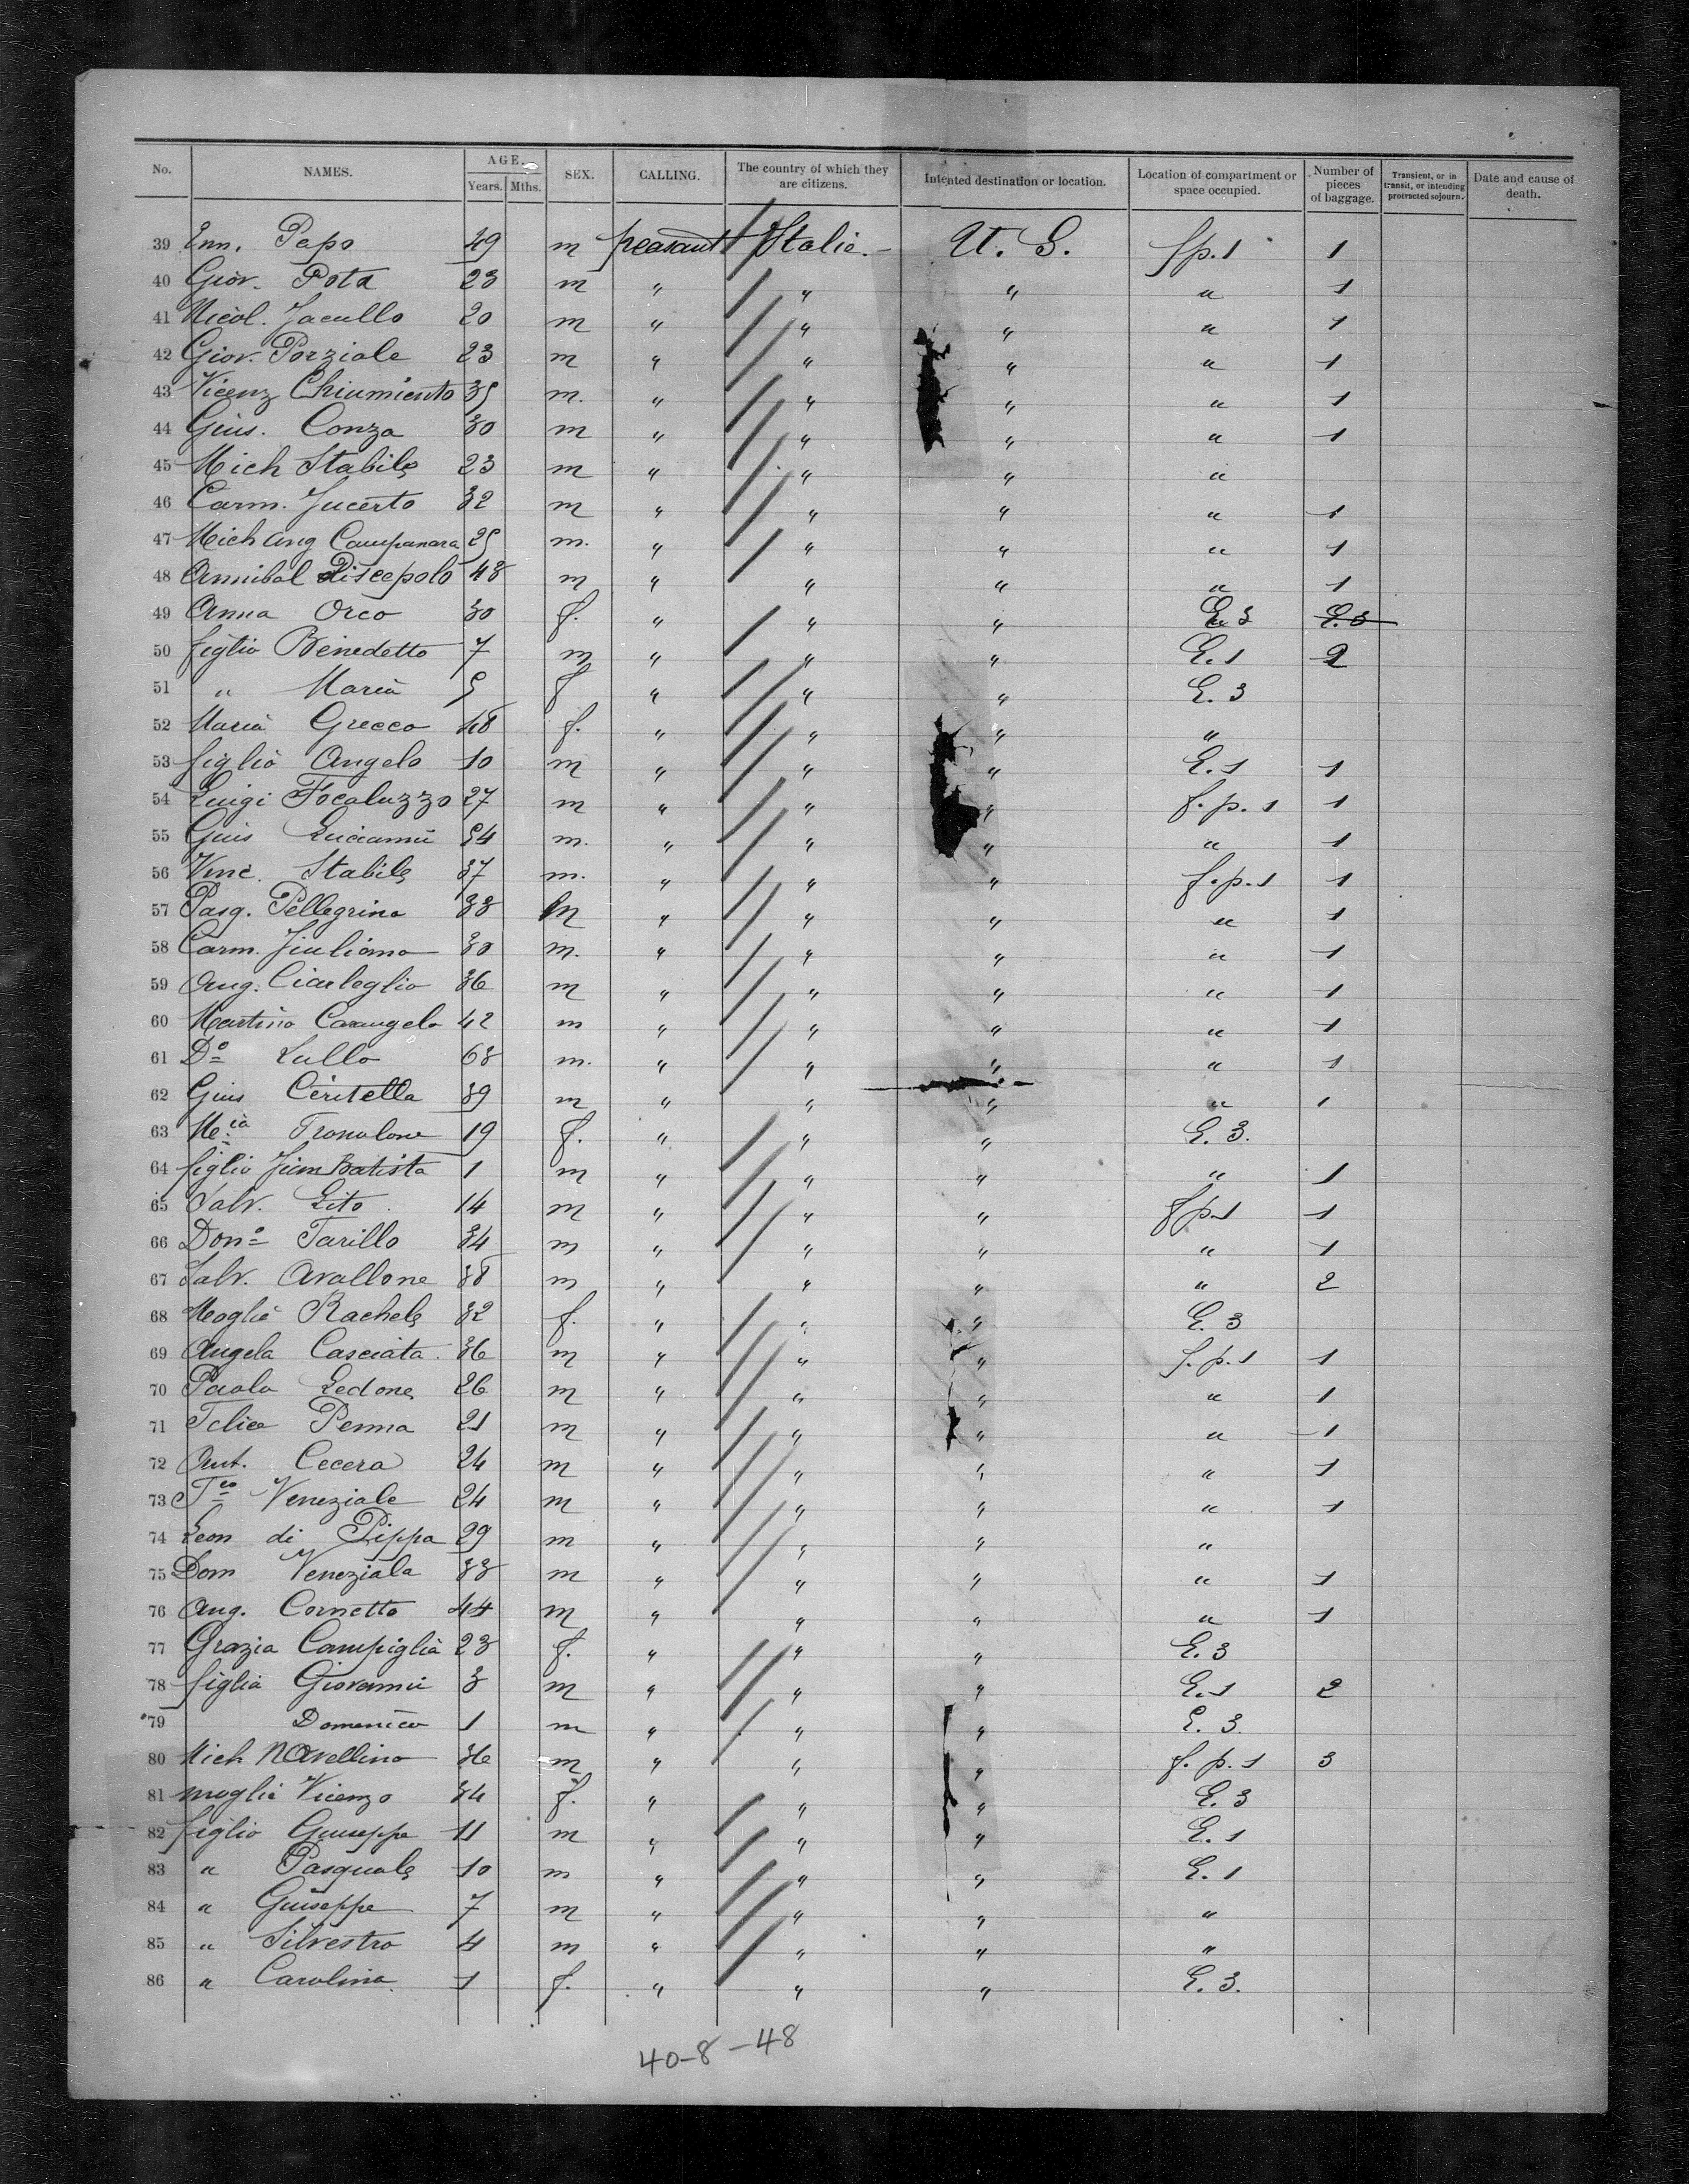 No. NAMES. AGE. Years. Mths. SEX. CALLING. The country of which they are citizens. Intented destination or location. Location of compartment or space occupied. Number of pieces of baggage. Transient, or in transit, or intending protracted sojourn. Date and cause of death.
39 Enn. Papo 49 m peasant Italie. U. S. f.p.1 1
40 Giov. Pota 23 m " " " " 1
41 Nicol. Jacullo 20 m " " " " 1
42 Giov. Porziale 23 m " " " " 1
43 Vicenz Chiumiento 35 m. " " " " 1
44 Gius. Conza 30 m " " " " 1
45 Mich Stabile 23 m " " " "
46 Carm. Jucerto 32 m " " " " 1
47 Mich ang Campanara 25 m. " " " " 1
48 Annibal Piscepolo 48 m " " " " 1
49 Anna Orco 30 f. " " " E. 3 E. 3
50 figlio Benedetto 7 m " " " E. 1 2
51 " Maria 5 f " " " E. 3
52 Maria Grecco 48 f. " " " "
53 figlio Angelo 10 m " " " E. 1 1
54 Luigi Focaluzzo 27 m " " " f. p. 1 1
55 Gius Lucianni 54 m. " " " " 1
56 Vinc. Stabile 37 m. " " " f. p. 1 1
57 Pasq. Pellegrino 33 m " " " " 1
58 Carm. Juliano 30 m. " " " " 1
59 Ang. Ciarleglio 36 m " " " " 1
60 Martino Carangelo 42 m " " " " 1
61 Do Lullo 63 m. " " " " 1
62 Gius Ceritella 39 m " " " " 1
63 Me.ia Tronolone 19 f. " " " E. 3.
64 figlio Jium Batista 1 m " " " " 1
65 Salv. Lito 14 m " " " f p. 1 1
66 Dono Tarillo 34 m " " " " 1
67 Salv. Avallone 38 m " " " " 2
68 Moglie Rachele 32 f. " " " E. 3
69 Angela Casciata. 36 m " " " f. p. 1 1
70 Paolo Ledone 26 m " " " " 1
71 Felice Penna 21 m " " " " 1
72 Ant. Cecera 24 m " " " " 1
73 Fco Veneziale 24 m " " " " 1
74 Leon di Pippa 29 m " " " "
75 Dom Veneziala 33 m " " " " 1
76 Ang. Cornetto 44 m " " " " 1
77 Grazia Campiglia 23 f. " " " E. 3
78 figlia Giovanni 3 m " " " E. 1 2
79 Domenico 1 m " " " E. 3.
80 Mich Navellino 36 m " " " f. p. 1 3
81 moglie Vicenzo 34 f. " " " E. 3
82 figlio Guiseppe 11 m " " " E. 1
83 " Pasquale 10 m " " " E. 1
84 " Guiseppe 7 m " " " "
85 " Silvestro 4 m " " " "
86 " Carolina. 1 f. " " " E. 3.
40-8-48